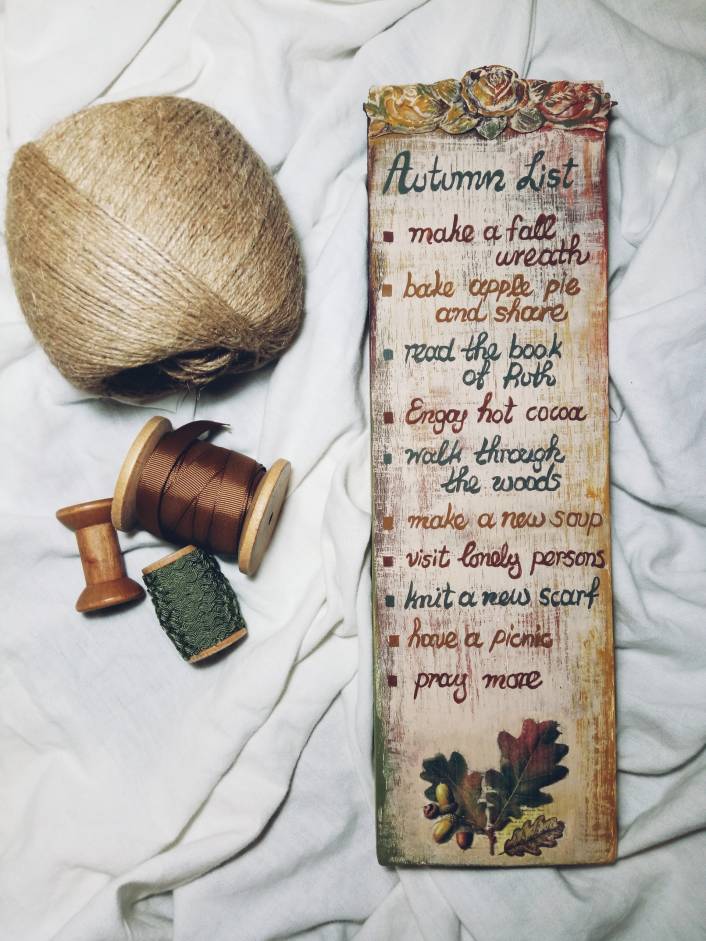 Autumn List
make a fall
wreath
bake apple pie
and share
read the book
of Ruth
Engoy hot cocoa
walk through
the woods
make a new soup
visit lonely persons
knit a new scarf
have a picnic
pray more